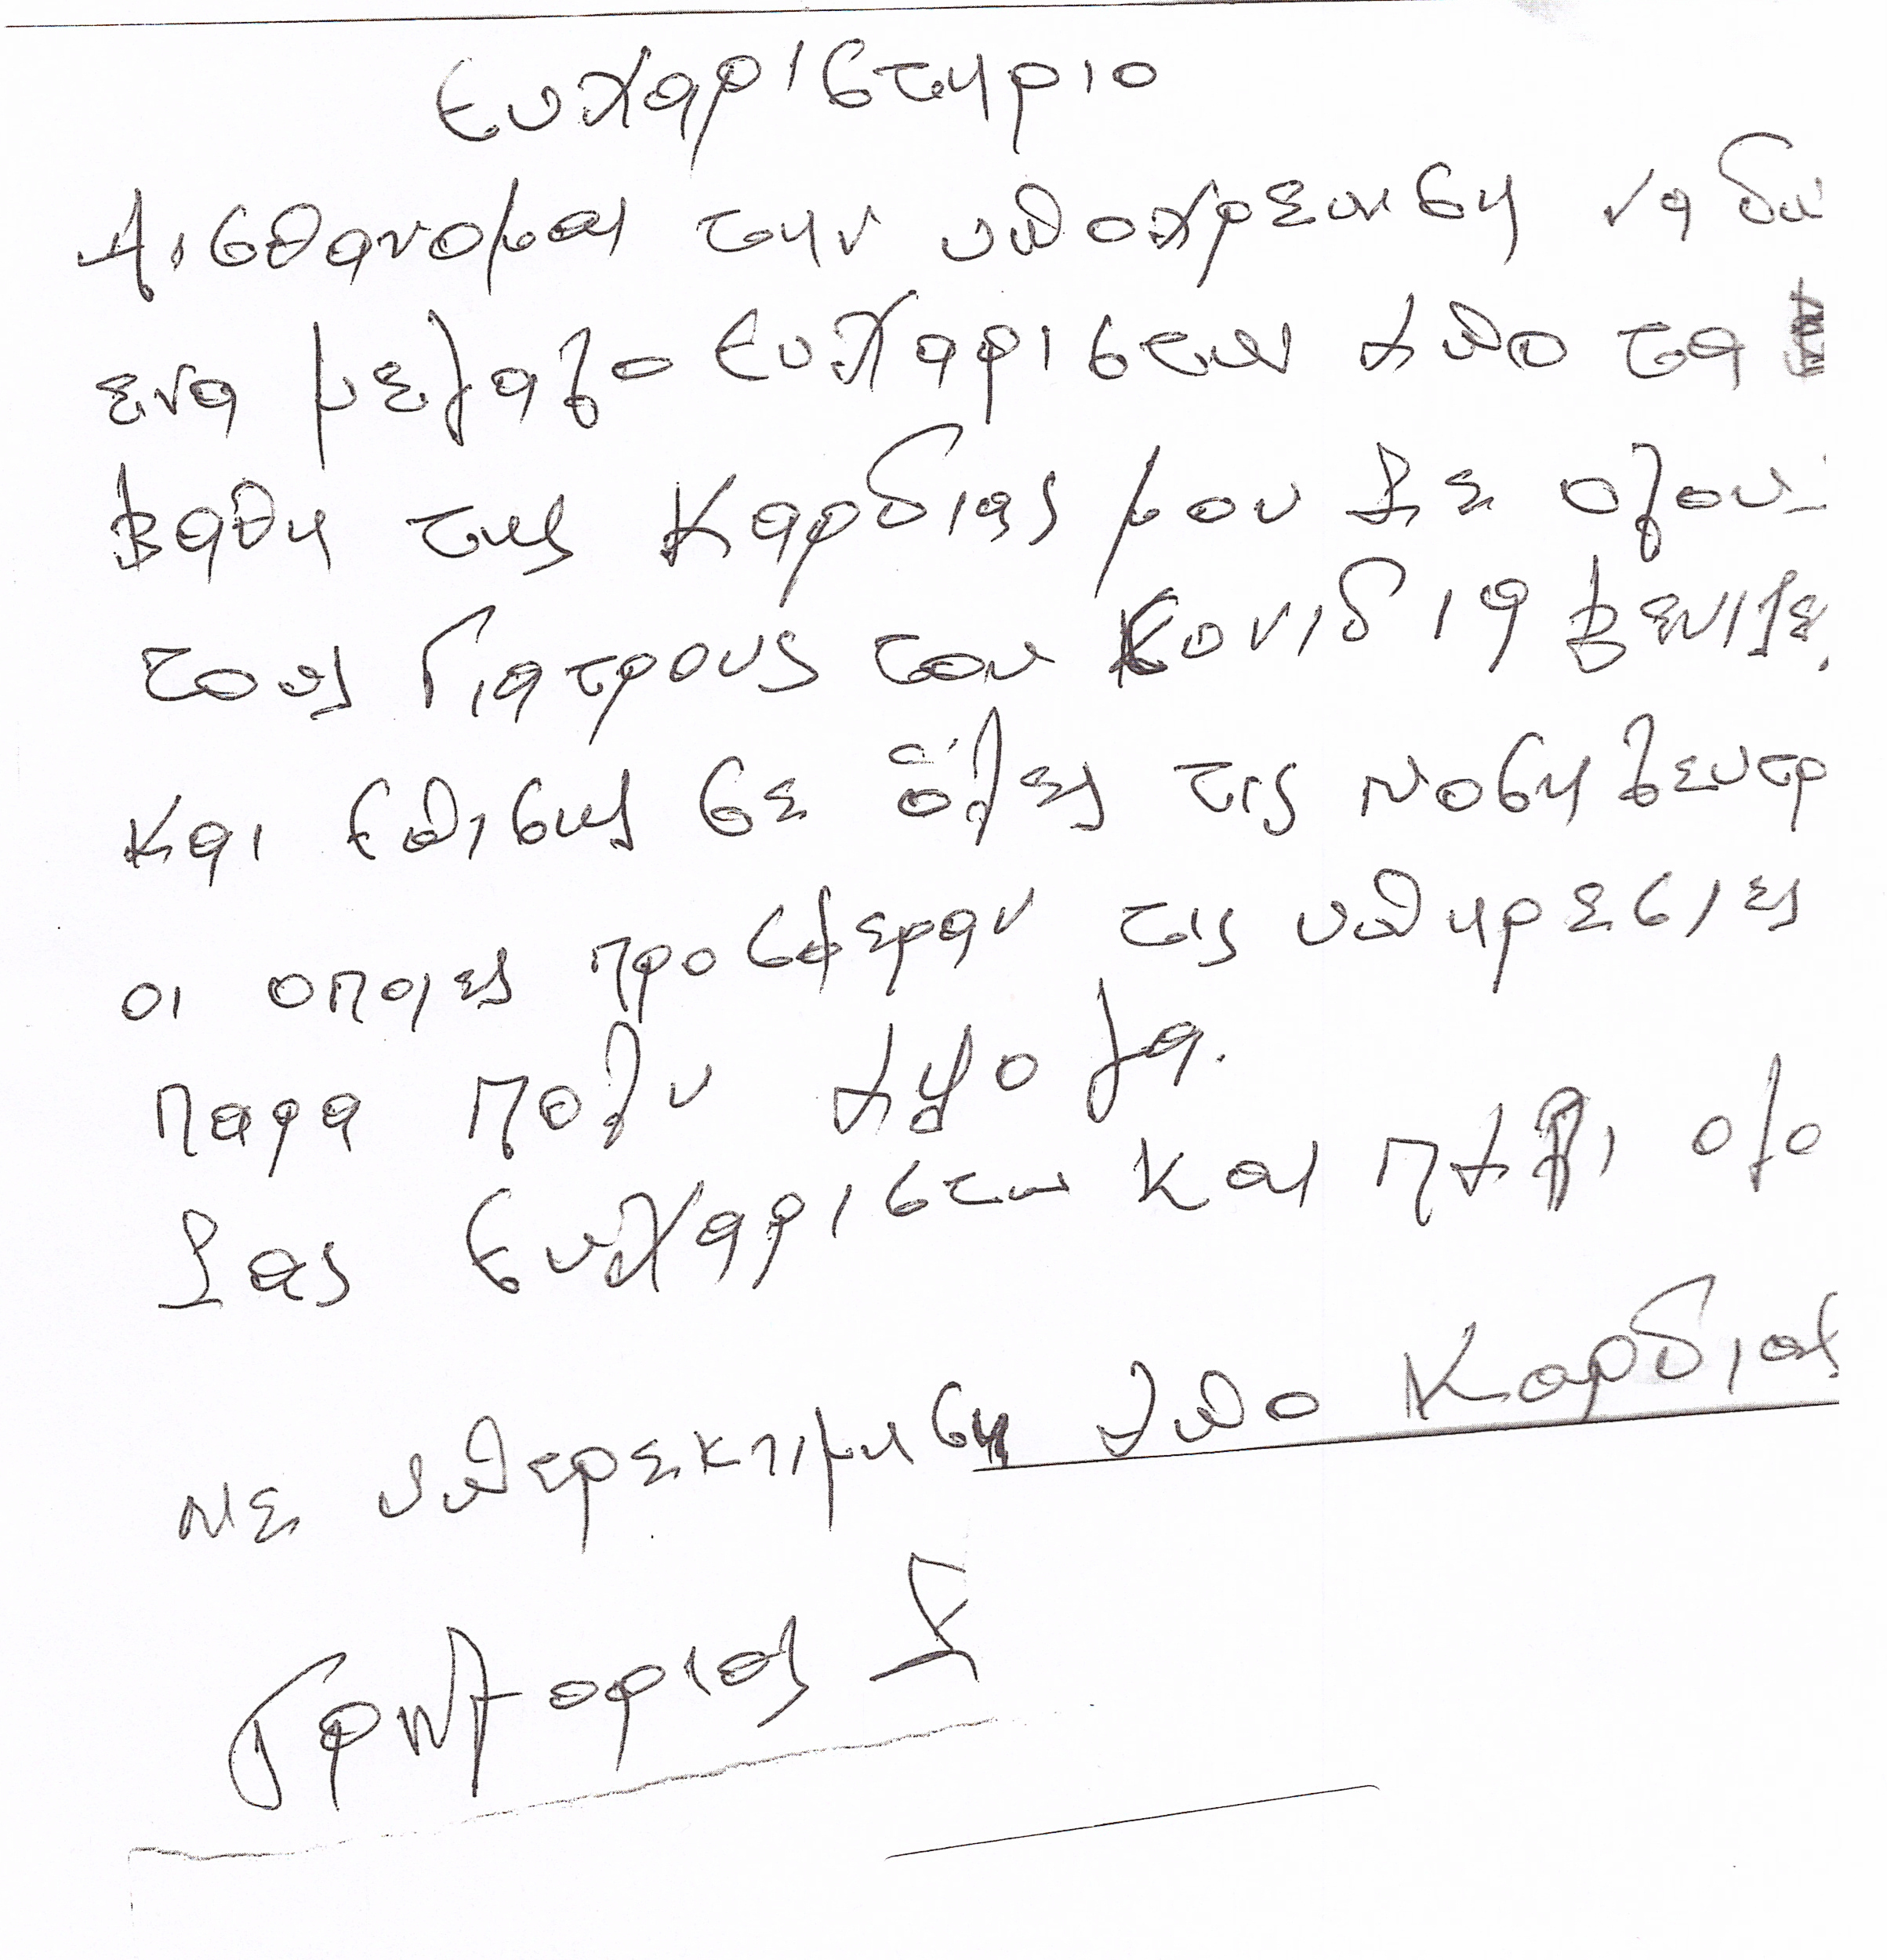 Ευχαριστηριο
Αισθανομαι την υποχρεωση να δω
ενα μεγαλο ευχαριστω Απο τα
Βαθη της Καρδιας μου Σε ολου
τους Γιατρους του Κονιδιη Βενιζε
και Επισης σε όλες τις νοσηλευτρ
οι οποιες προσφεραν τις υπηρεσιες
παρα πολυ Αψογα.
Σας Ευχαριστω και πΑλι ολο
Με υπερεκτιμηση Απο Καρδιας
Γρηγοριος Σ